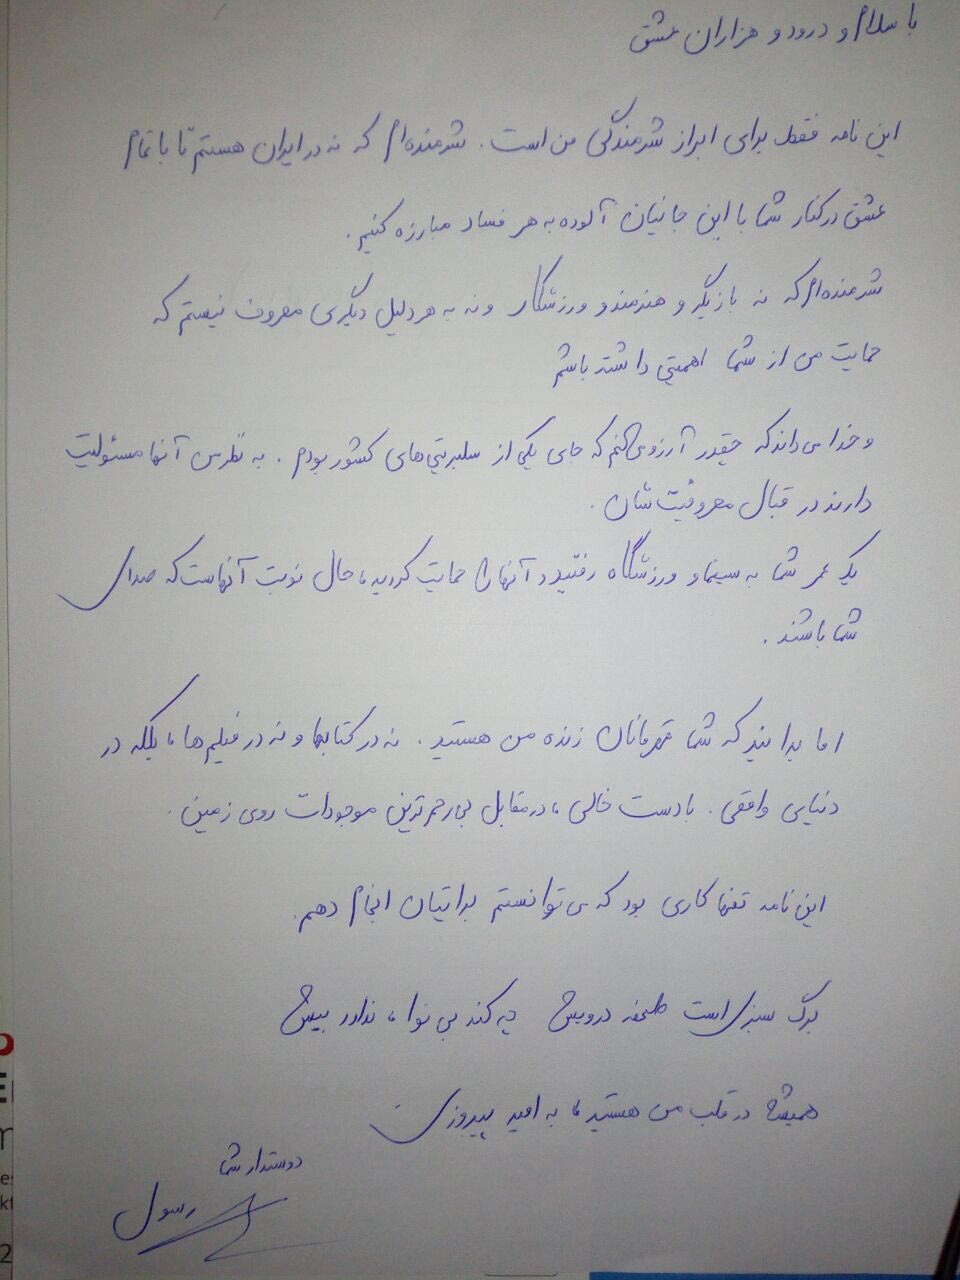 با سلام و درود و هزاران عشق
این نامه فقط برای ابراز شرمندگی من است. شرمنده‌ام که نه در ایران هستم تا با تمام
عشق در کنار شما با این جانیان آلوده به هر فساد مبارزه کنیم.
شرمنده‌ام که نه بازیگر و هنرمند و ورزشکار و نه به هر دلیل دیگری معروف نیستم که
حمایت من از شما اهمیتی داشته باشم
و خدا می‌داند که چقدر آرزو می‌کنم که جای یکی از سلبریتی‌های کشور بودم. به نظر من آنها مسئولیت
دارند در قبال معروفیت‌شان.
یک عمر شما به سینما و ورزشگاه رفتید و آنها را حمایت کردید، حال نوبت آنهاست که صدای
شما باشند.
اما بدانید که شما قهرمانان زنده من هستید. نه در کتابها و نه در فیلم‌ها، بلکه در
دنیای واقعی. با دست خالی، در مقابل بی‌رحم‌ترین موجودات روی زمین.
این نامه تنها کاری بود که می‌توانستم براتیان انجام دهم.
برگ سبزی است تحفه درویش چه کند بی نوا، ندارد بیش
همیشه در قلب من هستید، به امید پیروزی
دوستدار شما
رسول
E
m
es
kt
2